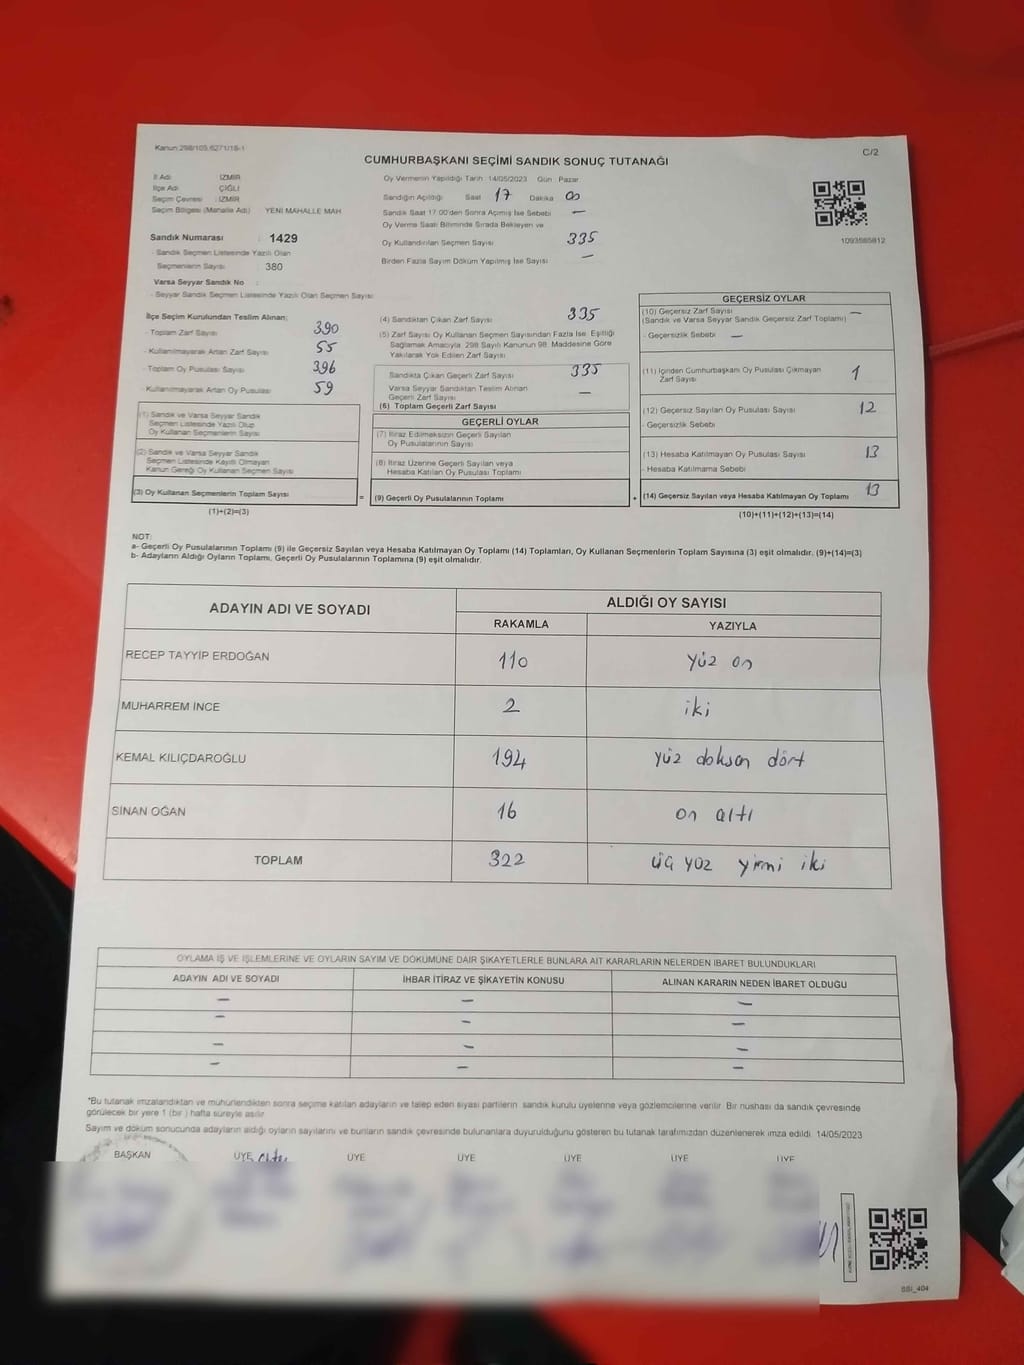 Kanun:298/105,6271/18-1
C/2
CUMHURBAŞKANI SEÇİMİ SANDIK SONUÇ TUTANAĞI
İl Adı : İZMİR
İlçe Adı : ÇİĞLİ
Seçim Çevresi : İZMİR
Seçim Bölgesi (Mahalle Adı) YENİ MAHALLE MAH
Sandık Numarası : 1429
- Sandık Seçmen Listesinde Yazılı Olan
Seçmenlerin Sayısı : 380
Varsa Seyyar Sandık No :
- Seyyar Sandık Seçmen Listesinde Yazılı Olan Seçmen Sayısı:
Oy Vermenin Yapıldığı Tarih :14/05/2023 Gün : Pazar
Sandığın Açıldığı Saat 17 Dakika 00
Sandık Saat 17:00'den Sonra Açılmış İse Sebebi —
Oy Verme Saati Bitiminde Sırada Bekleyen ve
Oy Kullandırılan Seçmen Sayısı 335
Birden Fazla Sayım Döküm Yapılmış İse Sayısı —
1093585812
İlçe Seçim Kurulundan Teslim Alınan;
- Toplam Zarf Sayısı 390
- Kullanılmayarak Artan Zarf Sayısı 55
- Toplam Oy Pusulası Sayısı 396
- Kullanılmayarak Artan Oy Pusulası 59
(1) Sandık ve Varsa Seyyar Sandık
Seçmen Listesinde Yazılı Olup
Oy Kullanan Seçmenlerin Sayısı
(2) Sandık ve Varsa Seyyar Sandık
Seçmen Listesinde Kayıtlı Olmayan
Kanun Gereği Oy Kullanan Seçmen Sayısı
(3) Oy Kullanan Seçmenlerin Toplam Sayısı
(1)+(2)=(3)
(4) Sandıktan Çıkan Zarf Sayısı 335
(5) Zarf Sayısı Oy Kullanan Seçmen Sayısından Fazla İse, Eşitliği
Sağlamak Amacıyla, 298 Sayılı Kanunun 98. Maddesine Göre
Yakılarak Yok Edilen Zarf Sayısı
Sandıkta Çıkan Geçerli Zarf Sayısı 335
Varsa Seyyar Sandıktan Teslim Alınan
Geçerli Zarf Sayısı —
(6) Toplam Geçerli Zarf Sayısı
GEÇERLİ OYLAR
(7) İtiraz Edilmeksizin Geçerli Sayılan
Oy Pusulalarının Sayısı
(8) İtiraz Üzerine Geçerli Sayılan veya
Hesaba Katılan Oy Pusulası Toplamı
= (9) Geçerli Oy Pusulalarının Toplamı
GEÇERSİZ OYLAR
(10) Geçersiz Zarf Sayısı —
(Sandık ve Varsa Seyyar Sandık Geçersiz Zarf Toplamı)
- Geçersizlik Sebebi —
(11) İçinden Cumhurbaşkanı Oy Pusulası Çıkmayan
Zarf Sayısı 1
(12) Geçersiz Sayılan Oy Pusulası Sayısı 12
- Geçersizlik Sebebi
(13) Hesaba Katılmayan Oy Pusulası Sayısı 13
- Hesaba Katılmama Sebebi
+ (14) Geçersiz Sayılan veya Hesaba Katılmayan Oy Toplamı 13
(10)+(11)+(12)+(13)=(14)
NOT:
a- Geçerli Oy Pusulalarının Toplamı (9) ile Geçersiz Sayılan veya Hesaba Katılmayan Oy Toplamı (14) Toplamları, Oy Kullanan Seçmenlerin Toplam Sayısına (3) eşit olmalıdır. (9)+(14)=(3)
b- Adayların Aldığı Oyların Toplamı, Geçerli Oy Pusulalarının Toplamına (9) eşit olmalıdır.
ADAYIN ADI VE SOYADI ALDIĞI OY SAYISI
RAKAMLA YAZIYLA
RECEP TAYYİP ERDOĞAN 110 yüz on
MUHARREM İNCE 2 iki
KEMAL KILIÇDAROĞLU 194 yüz doksan dört
SİNAN OĞAN 16 on altı
TOPLAM 322 üç yüz yirmi iki
OYLAMA İŞ VE İŞLEMLERİNE VE OYLARIN SAYIM VE DÖKÜMÜNE DAİR ŞİKAYETLERLE BUNLARA AİT KARARLARIN NELERDEN İBARET BULUNDUKLARI
ADAYIN ADI VE SOYADI İHBAR İTİRAZ VE ŞİKAYETİN KONUSU ALINAN KARARIN NEDEN İBARET OLDUĞU
— — —
— — —
— — —
— — —
*Bu tutanak imzalandıktan ve mühürlendikten sonra seçime katılan adayların ve talep eden siyasi partilerin sandık kurulu üyelerine veya gözlemcilerine verilir. Bir nüshası da sandık çevresinde
görülecek bir yere 1 (bir ) hafta süreyle asılır.
Sayım ve döküm sonucunda adayların aldığı oyların sayılarını ve bunların sandık çevresinde bulunanlara duyurulduğunu gösteren bu tutanak tarafımızdan düzenlenerek imza edildi. 14/05/2023
BAŞKAN ÜYE ÜYE ÜYE ÜYE ÜYE ÜYE
SSİ_404